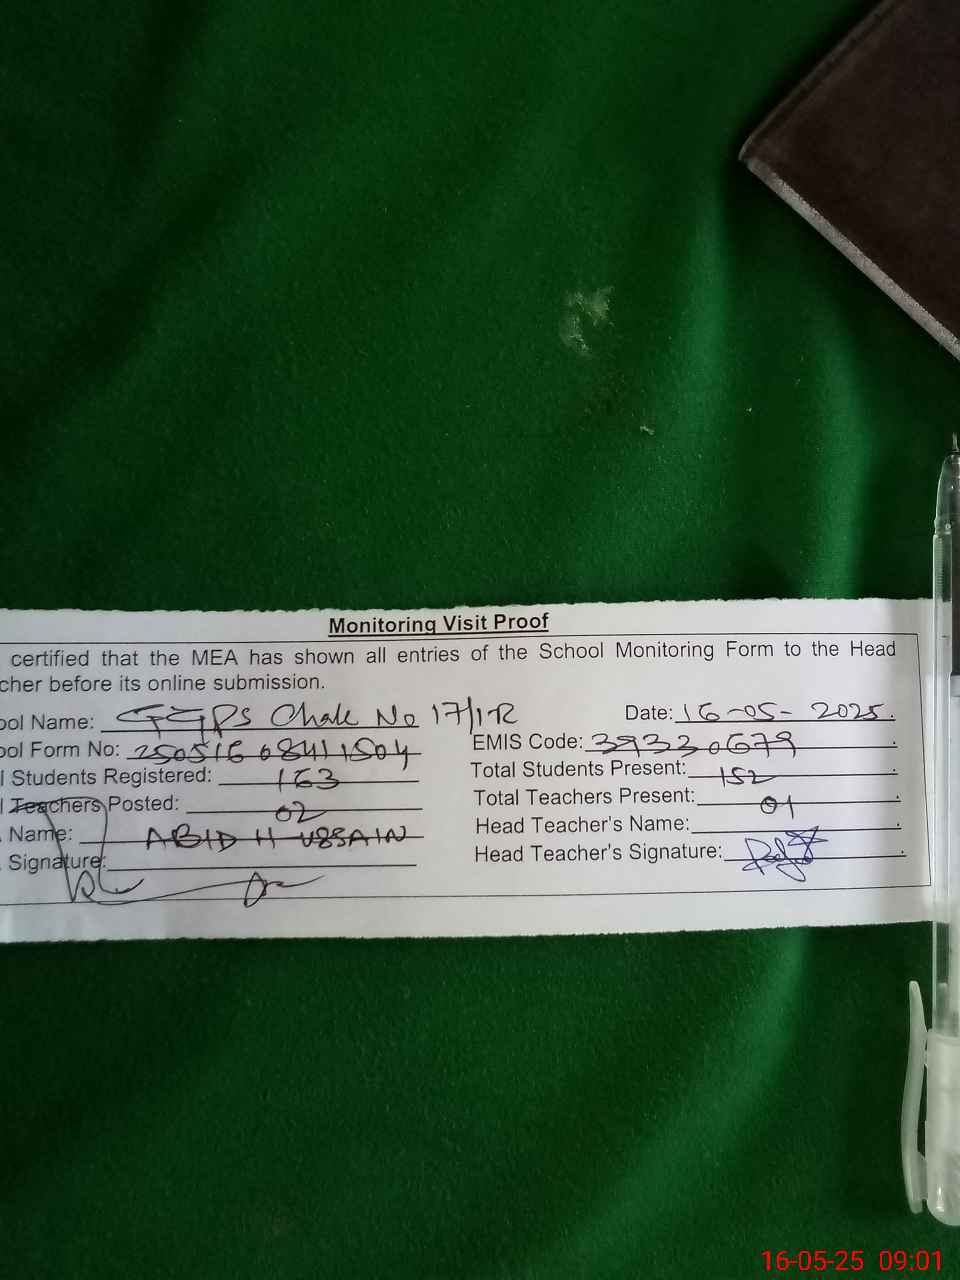 Monitoring Visit Proof
certified that the MEA has shown all entries of the School Monitoring Form to the Head
cher before its online submission.
ool Name: GGPS Chak No 17/1R Date: 16-05-2025.
ool Form No: 25051608411504 EMIS Code: 39330679.
l Students Registered: 163 Total Students Present: 152.
l Teachers Posted: 02 Total Teachers Present: 01.
Name: ABID HUSSAIN Head Teacher's Name: .
Signature: Head Teacher's Signature: .
16-05-25 09:01